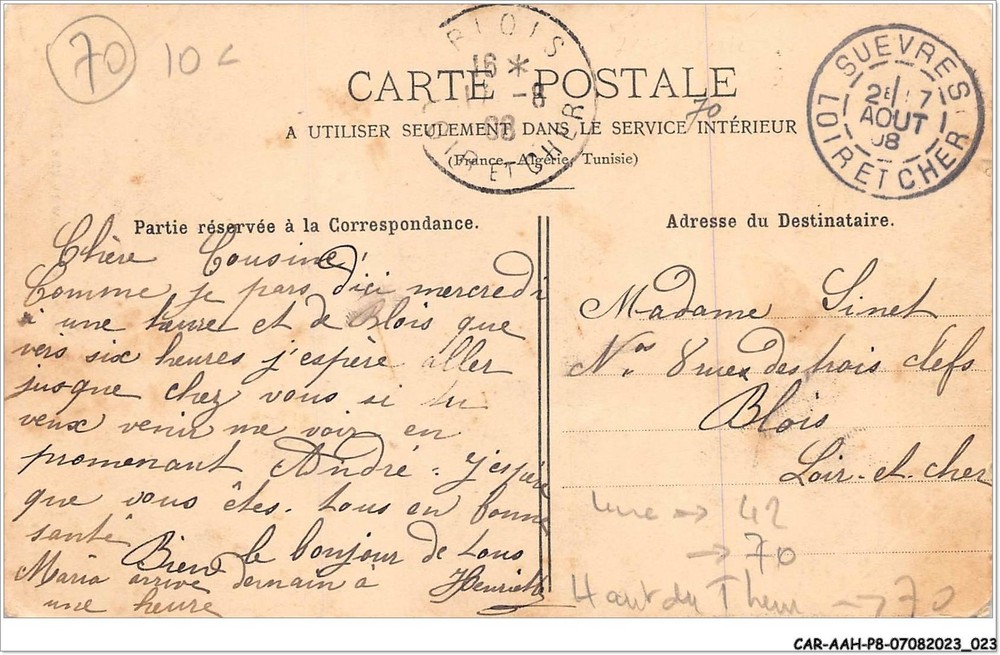 70
10 c
BLOIS
16 *
11 -8
08
LOIR ET CHER
SUEVRES
2E 17
AOUT
08
LOIR ET CHER
CARTE POSTALE
70
A UTILISER SEULEMENT DANS LE SERVICE INTÉRIEUR
(France, Algérie, Tunisie)
Partie réservée à la Correspondance.
Chère Cousine,
Comme je pars d'ici mercredi
à une heure et de Blois que
vers six heures j'espère aller
jusque chez vous si tu
veux venir me voir en
promenant André. j'espère
que vous êtes tous en bonne
santé
Bien le bonjour de tous
Maria arrive demain à Henriette
une heure
Adresse du Destinataire.
Madame Sinet
Nos 8 rue des trois clefs
Blois
Loir-et-cher
Lure → 42
→ 70
Haut du Them → 70
CAR-AAH-P8-07082023_023